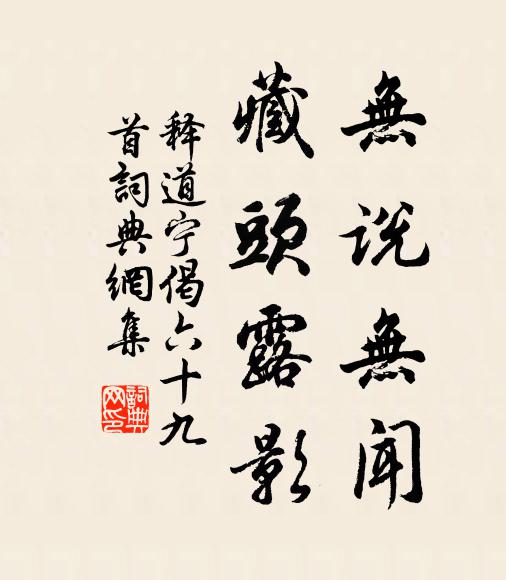 無説無聞
藏頭露影
释道宁偈六十九
首詞典網集
詞典
网印